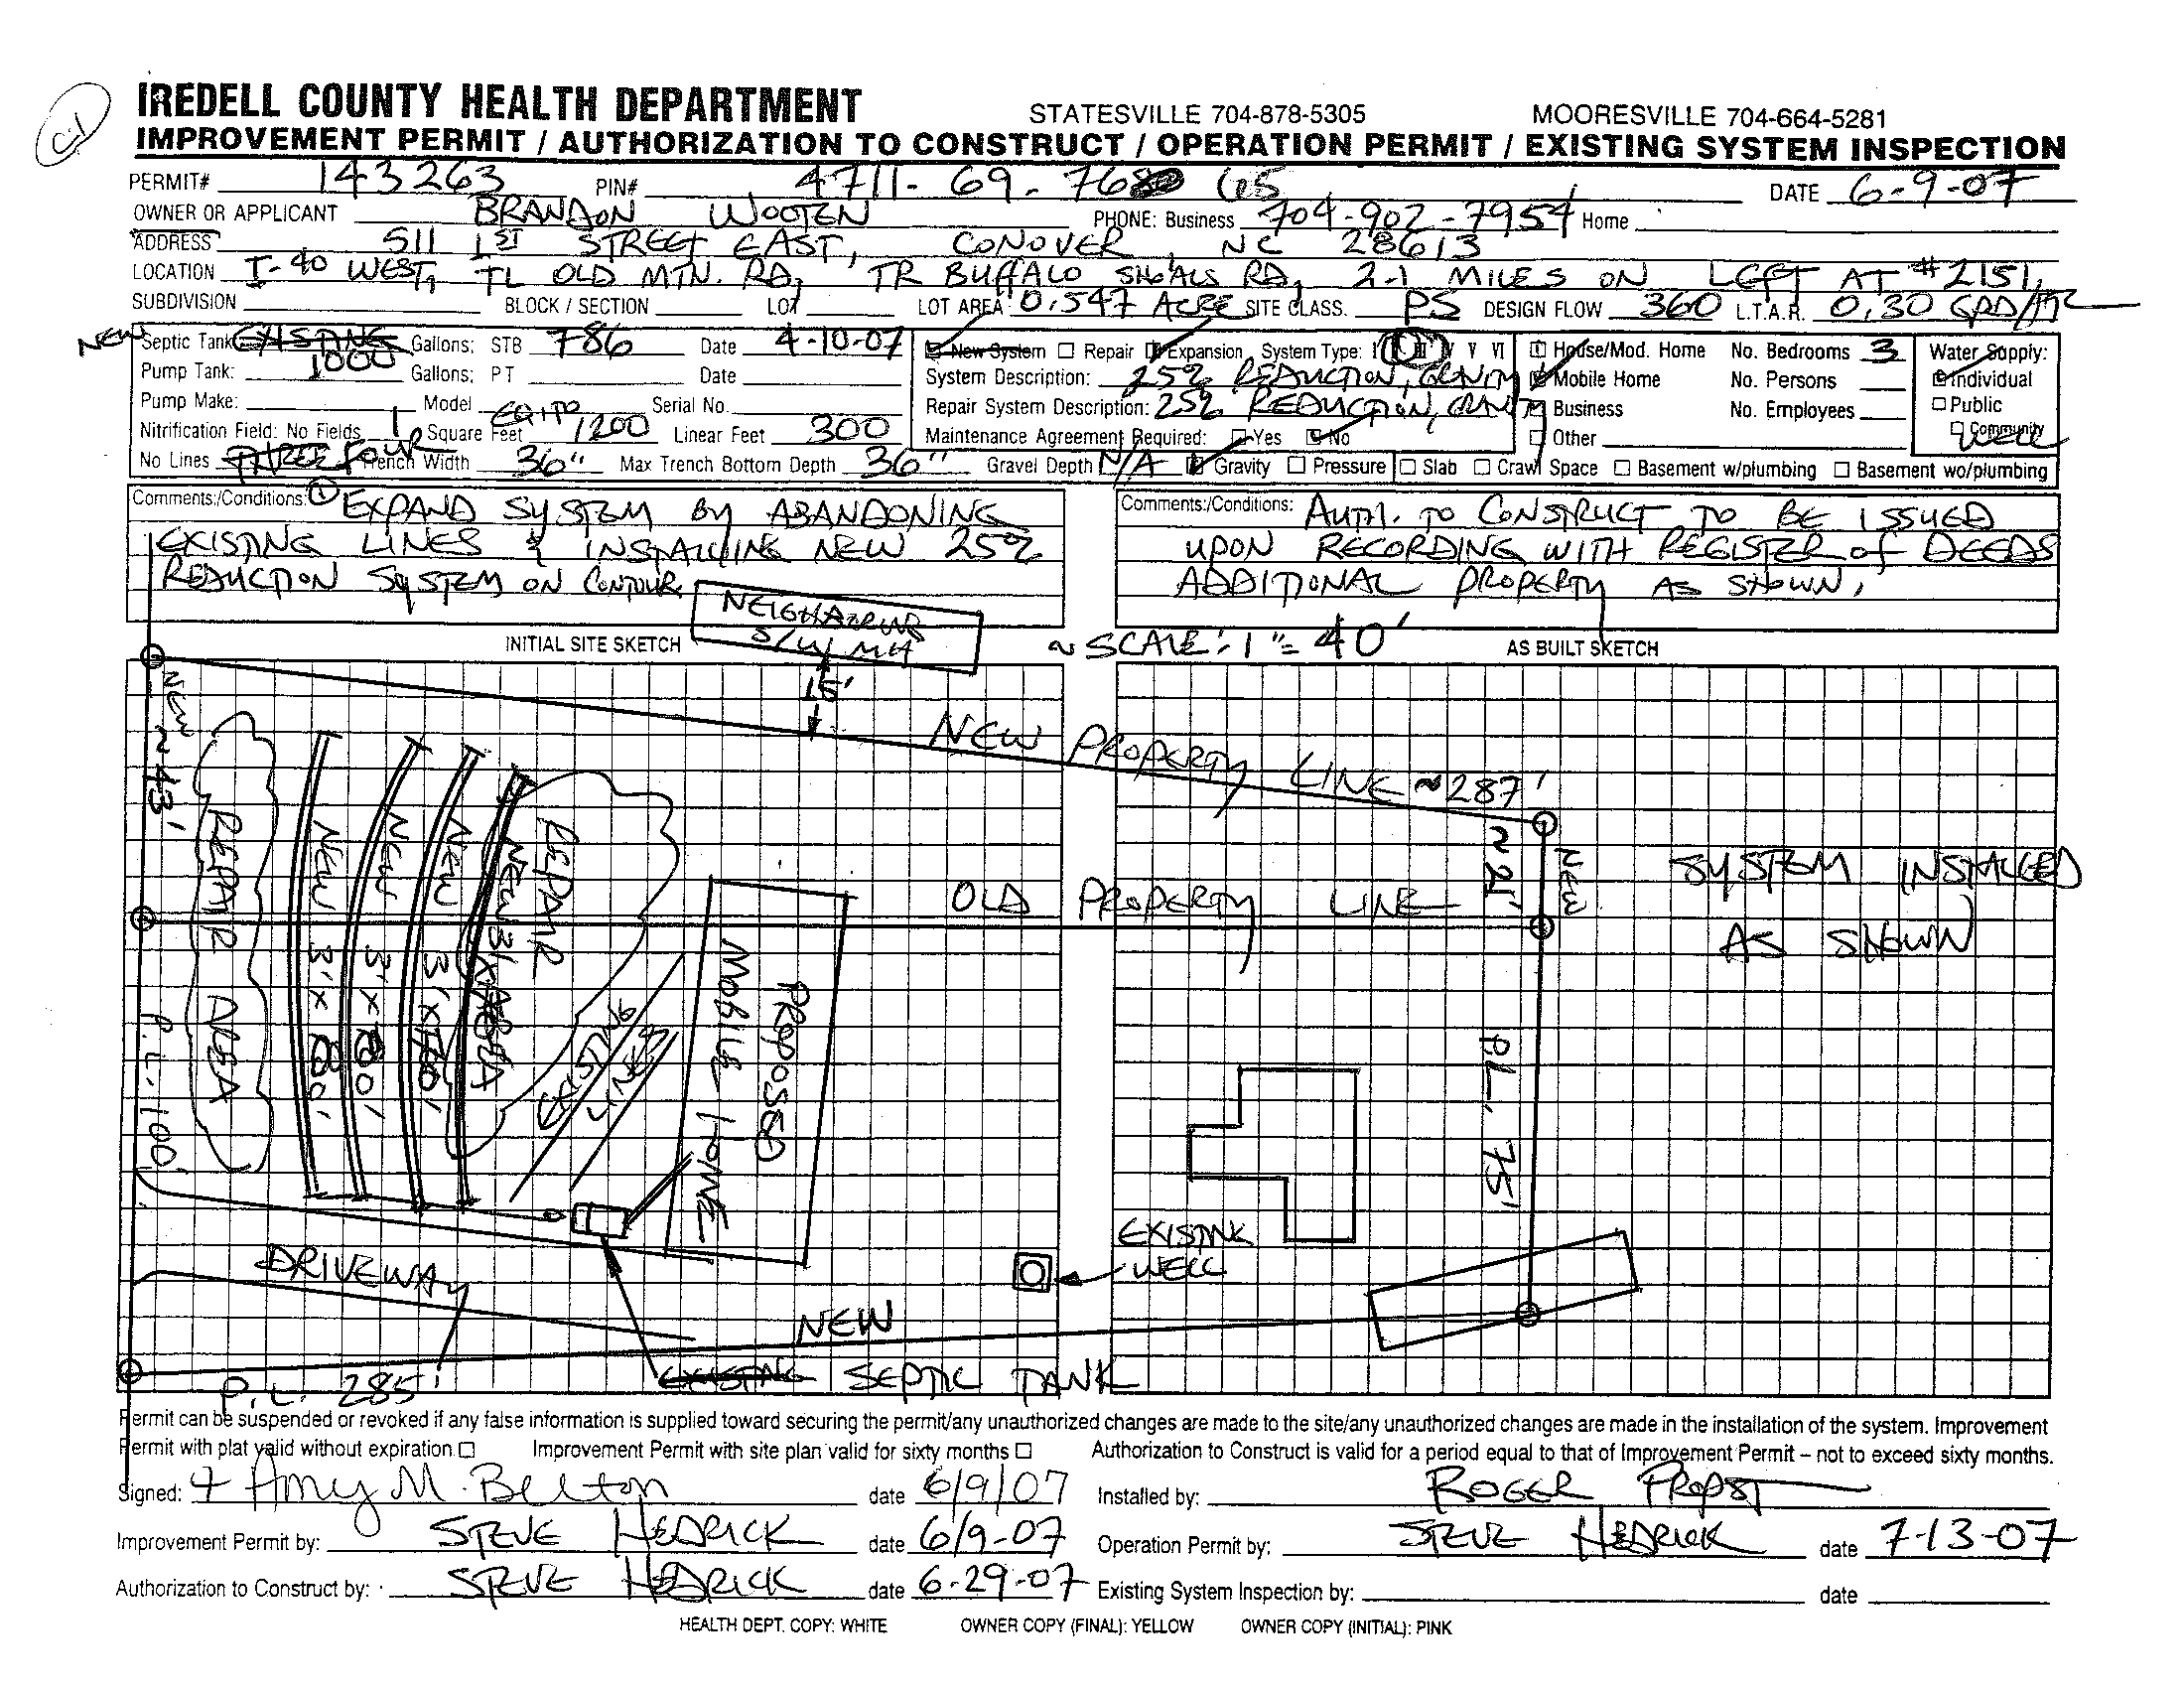 C-1
IREDELL COUNTY HEALTH DEPARTMENT STATESVILLE 704-878-5305 MOORESVILLE 704-664-5281
IMPROVEMENT PERMIT / AUTHORIZATION TO CONSTRUCT / OPERATION PERMIT / EXISTING SYSTEM INSPECTION
PERMIT# 143263 PIN# 4711-69-76 65 DATE 6-9-07
OWNER OR APPLICANT BRANDON WOOTEN PHONE: Business 704-902-7954 Home
ADDRESS 511 1ST STREET EAST, CONOVER, NC 28613
LOCATION I-40 WEST, TL OLD MTN. RD, TR BUFFALO SHOALS RD, 2-1 MILES ON LEFT AT #2151,
SUBDIVISION BLOCK / SECTION LOT LOT AREA 0.547 ACRE SITE CLASS. PS DESIGN FLOW 360 L.T.A.R. 0.30 GPD/FT2
NEW Septic Tank: EXISTING 1000 Gallons; STB 786 Date 4-10-07
Pump Tank: Gallons; PT Date
Pump Make: Model Serial No.
Nitrification Field: No Fields 1 Square Feet EQ. TO 1200 Linear Feet 300
No Lines THREE FOUR Trench Width 36" Max Trench Bottom Depth 36" Gravel Depth N/A Gravity Pressure Slab Crawl Space Basement w/plumbing Basement wo/plumbing
New System Repair Expansion System Type: I II III IV V VI
System Description: 25% REDUCTION, GRAVITY
Repair System Description: 25% REDUCTION, GRAVITY
Maintenance Agreement Required: Yes No
House/Mod. Home No. Bedrooms 3
Mobile Home No. Persons
Business No. Employees
Other
Water Supply:
Individual
Public
Community
WELL
Comments:/Conditions: ① EXPAND SYSTEM BY ABANDONING
EXISTING LINES & INSTALLING NEW 25%
REDUCTION SYSTEM ON CONTOUR.
Comments:/Conditions: AUTH. TO CONSTRUCT TO BE ISSUED
UPON RECORDING WITH REGISTER of DEEDS
ADDITIONAL PROPERTY AS SHOWN.
NEIGHBORING
S/W MH
INITIAL SITE SKETCH ~ SCALE: 1"= 40' AS BUILT SKETCH
15'
NEW PROPERTY LINE ~287'
NEW
~43'
REPAIR AREA
NEW 3'x80'
NEW 3'x80'
NEW 3'x70'
NEW 3'x
REPAIR AREA
EXISTING LINES
PROPOSED
MOBILE HOME
OLD PROPERTY LINE
~21'
NEW
SYSTEM INSTALLED
AS SHOWN
P.L. 100'
P.L. 75'
DRIVEWAY
EXISTING
WELL
NEW
EXISTING SEPTIC TANK
P.L. 285'
Permit can be suspended or revoked if any false information is supplied toward securing the permit/any unauthorized changes are made to the site/any unauthorized changes are made in the installation of the system. Improvement
Permit with plat valid without expiration Improvement Permit with site plan valid for sixty months Authorization to Construct is valid for a period equal to that of Improvement Permit – not to exceed sixty months.
Signed: Amy M. Belton date 6/9/07 Installed by: ROGER PROPST
Improvement Permit by: STEVE HEDRICK date 6/9-07 Operation Permit by: STEVE HEDRICK date 7-13-07
Authorization to Construct by: STEVE HEDRICK date 6-29-07 Existing System Inspection by: date
HEALTH DEPT. COPY: WHITE OWNER COPY (FINAL): YELLOW OWNER COPY (INITIAL): PINK